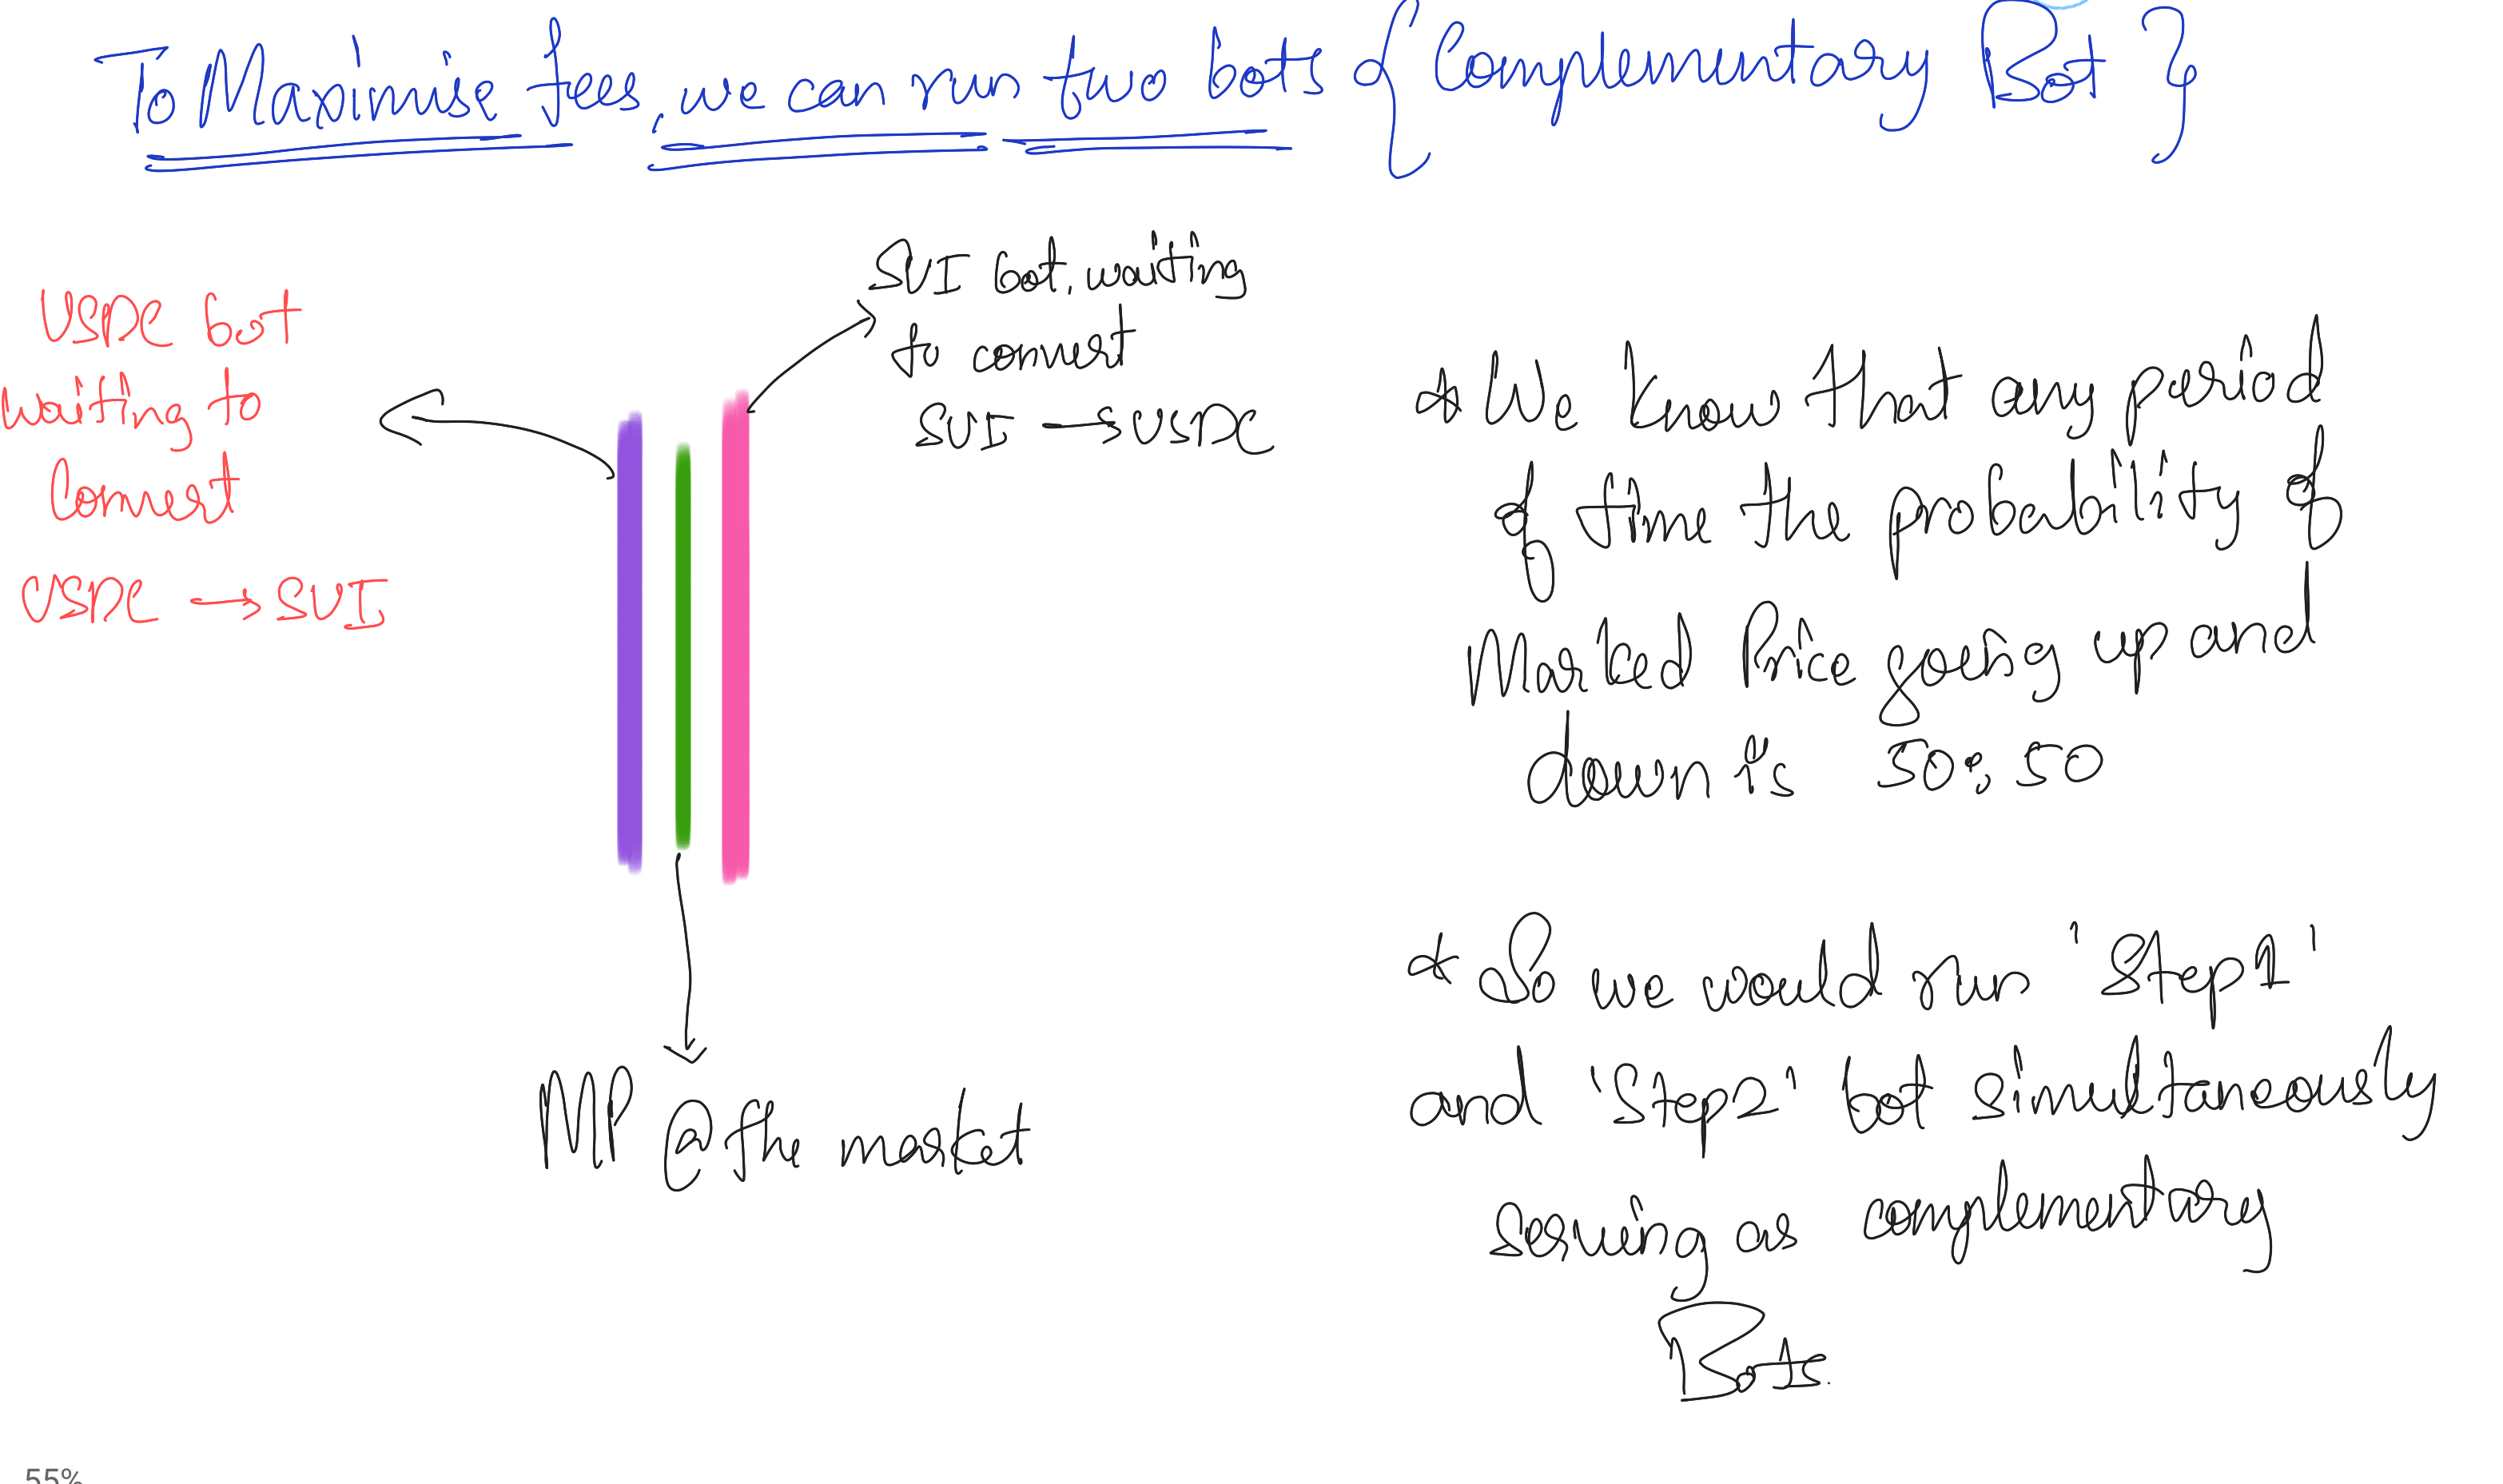 To Maximise fees, we can run two bots {Complementary Bot}
SUI bot, waiting
to convert
SUI → USDC
USDC bot
waiting to
Convert
USDC → SUI
MP @ the market
* We know that any period
of time the probability of
Market Price going up and
down is 50:50
* So we would run "Step1"
and "Step2" bot simultaneously
serving as complementary
Bots.
55%